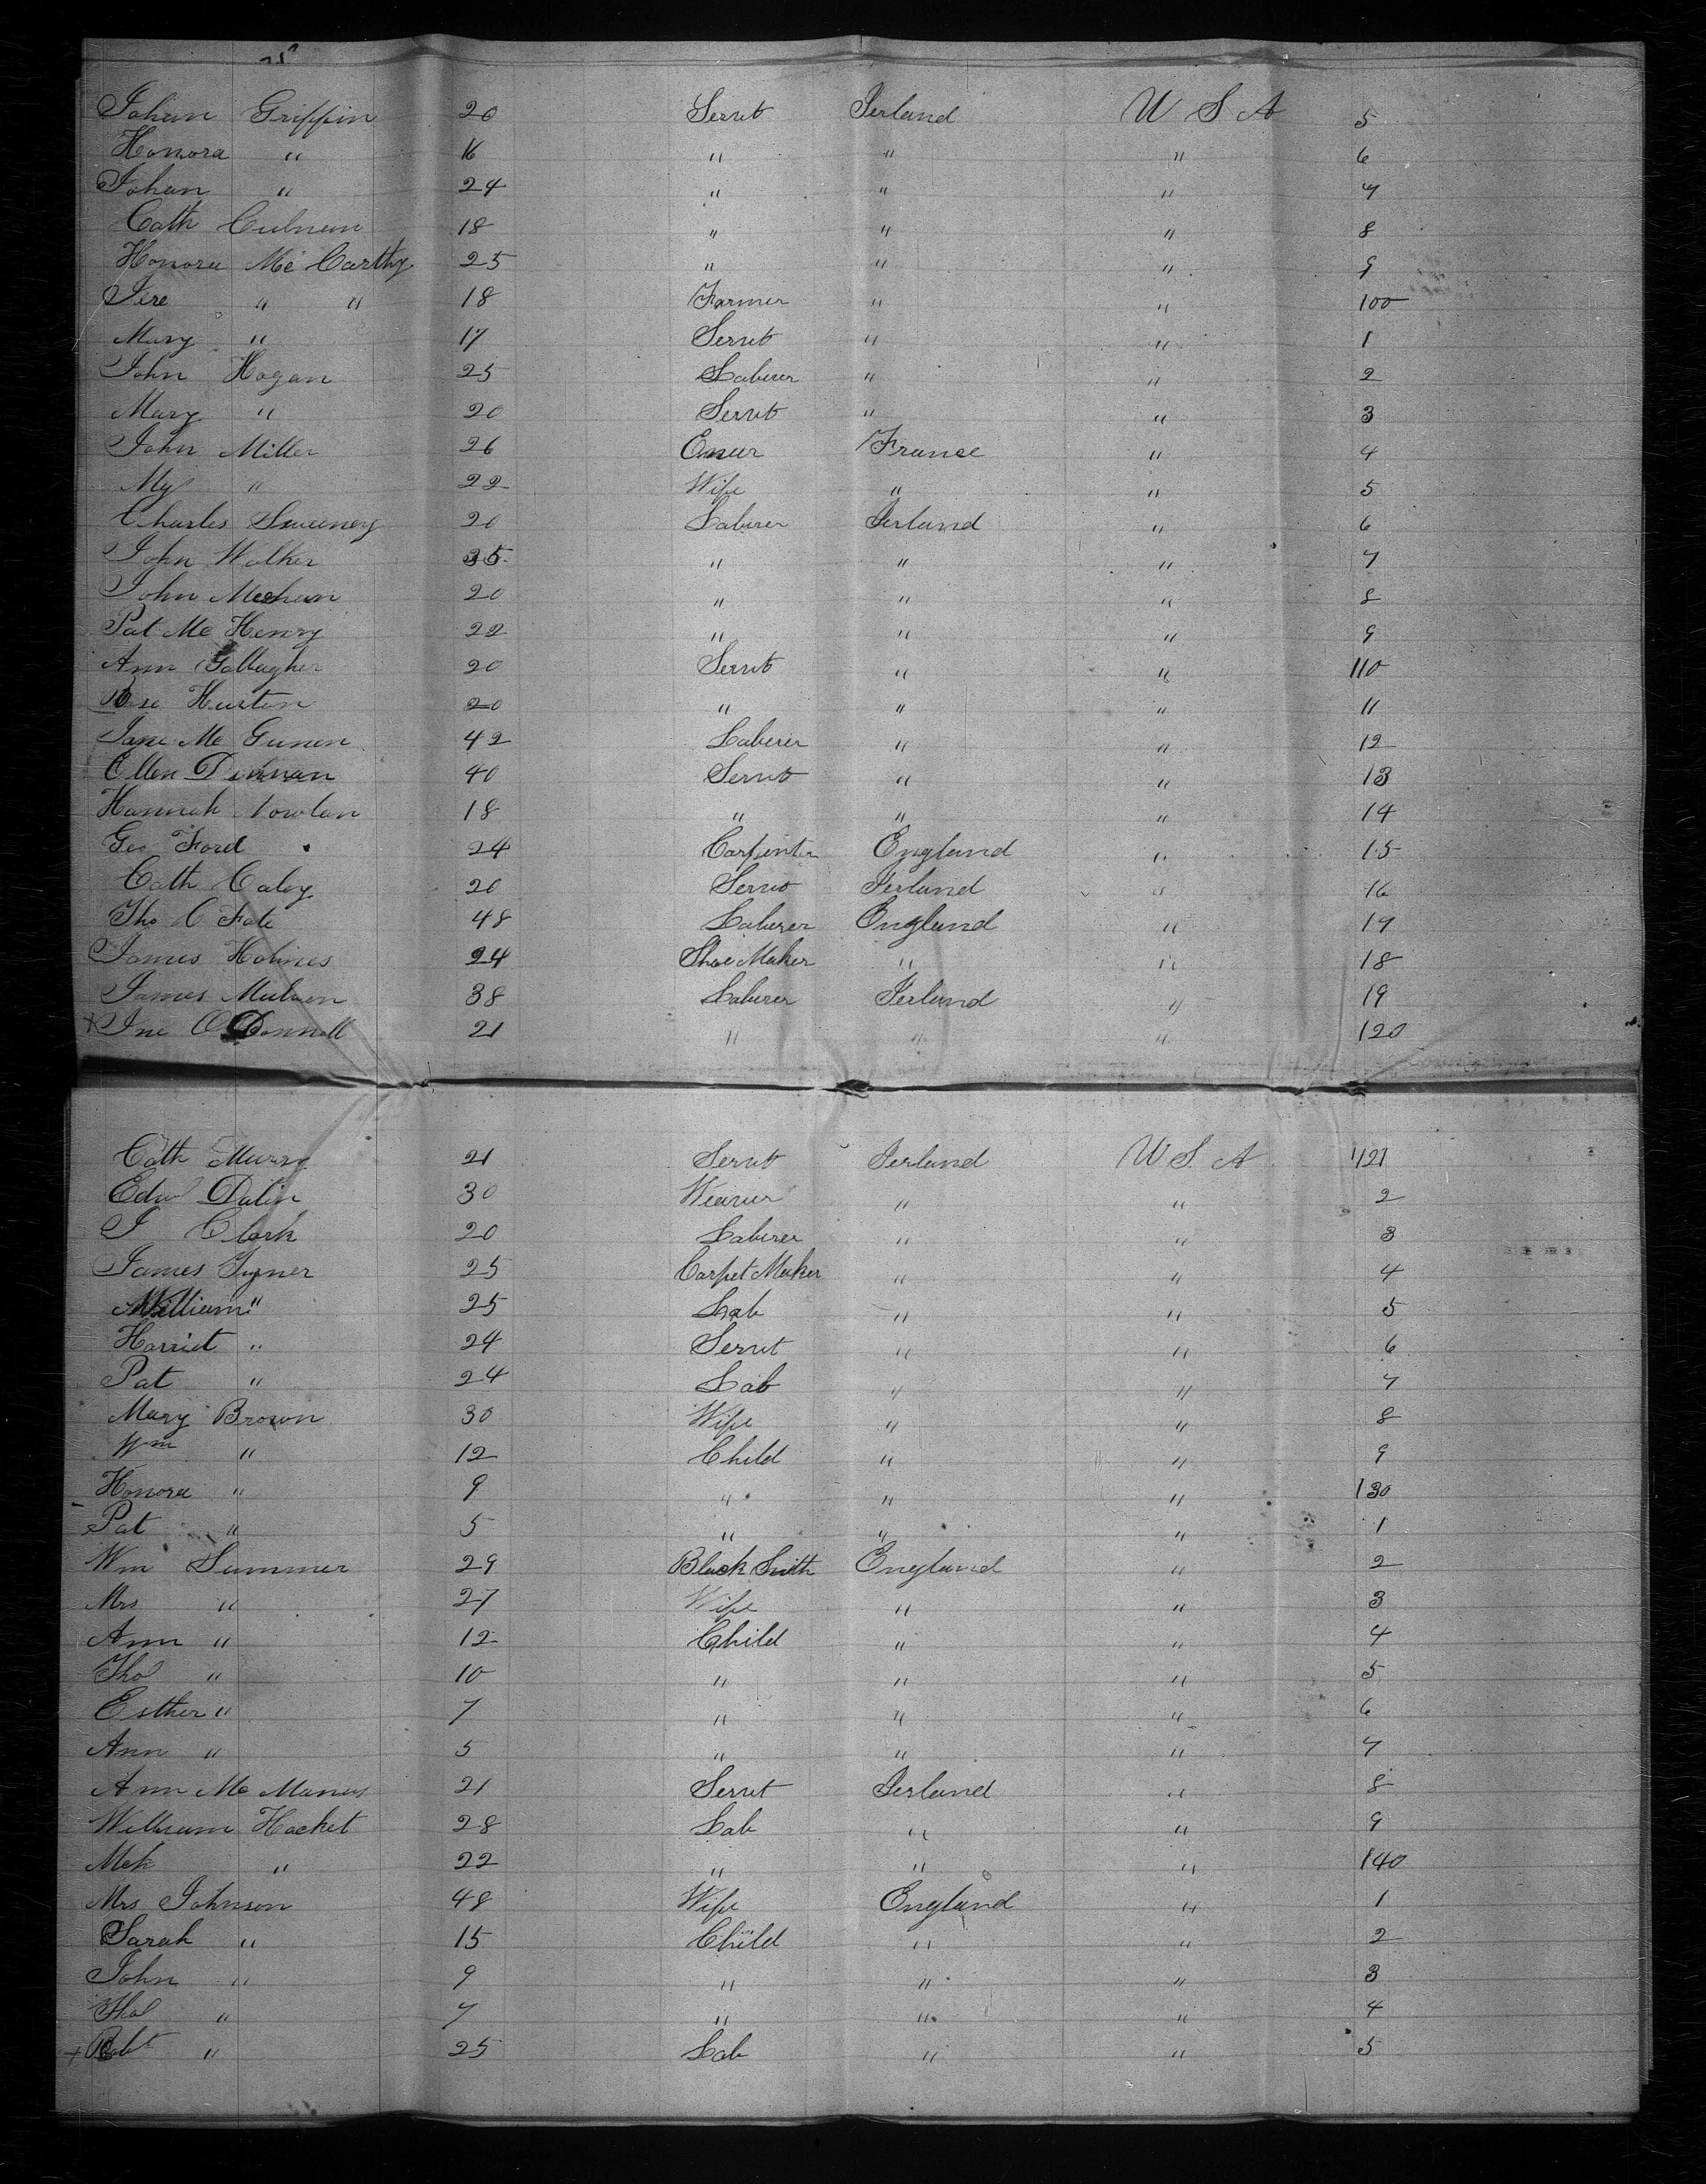 Johan Griffin 20 Servt Ierland U S A 5
Honora " 16 " " " 6
Johan " 24 " " " 7
Cath Culnun 18 " " " 8
Honora Mc Carthy 25 " " " 9
Jere " " 18 Farmer " " 100
Mary " 17 Servt " " 1
John Hogan 25 Laberer " " 2
Mary " 20 Servt " " 3
John Miller 26 France " 4
My " 22 Wife " " 5
Charles Sweeney 20 Laberer Ierland " 6
John Walker 35 " " " 7
John Meehan 20 " " " 8
Pat Mc Henry 22 " " " 9
Ann Gallagher 20 Servt " " 110
Rose Huston 20 " " " 11
Jane Mc 42 Laberer " " 12
Ellen 40 Servt " " 13
Hannah Nowlan 18 " " " 14
Geo Ford 24 Carpenter England " 15
Cath Caley 20 Servt Ierland " 16
Tho C Fate 48 Laberer England " 17
James Holmes 24 Shoe Maker " " 18
James 38 Laberer Ierland " 19
+ Jne O Donnell 21 " " " 120
Cath Murry 21 Servt Ierland U S A 121
Edwd Dalin 30 Weaver " " 2
J Clark 20 Laberer " " 3
James Tyner 25 Carpet Maker " " 4
William " 25 Lab " " 5
Harriet " 24 Servt " " 6
Pat " 24 Lab " " 7
Mary Brown 30 Wife " " 8
Wm " 12 Child " " 9
Honora " 9 " " " 130
Pat " 5 " " " 1
Wm Summer 29 Black Smith England " 2
Mrs " 27 Wife " " 3
Ann " 12 Child " " 4
Tho " 10 " " " 5
Esther " 7 " " " 6
Ann " 5 " " " 7
Ann Mc Manus 21 Servt Ierland " 8
William Hacket 28 Lab " " 9
Mck " 22 " " " 140
Mrs Johnson 48 Wife England " 1
Sarah " 15 Child " " 2
John " 9 " " " 3
Tho " 7 " " " 4
+ Robt " 25 Lab " " 5